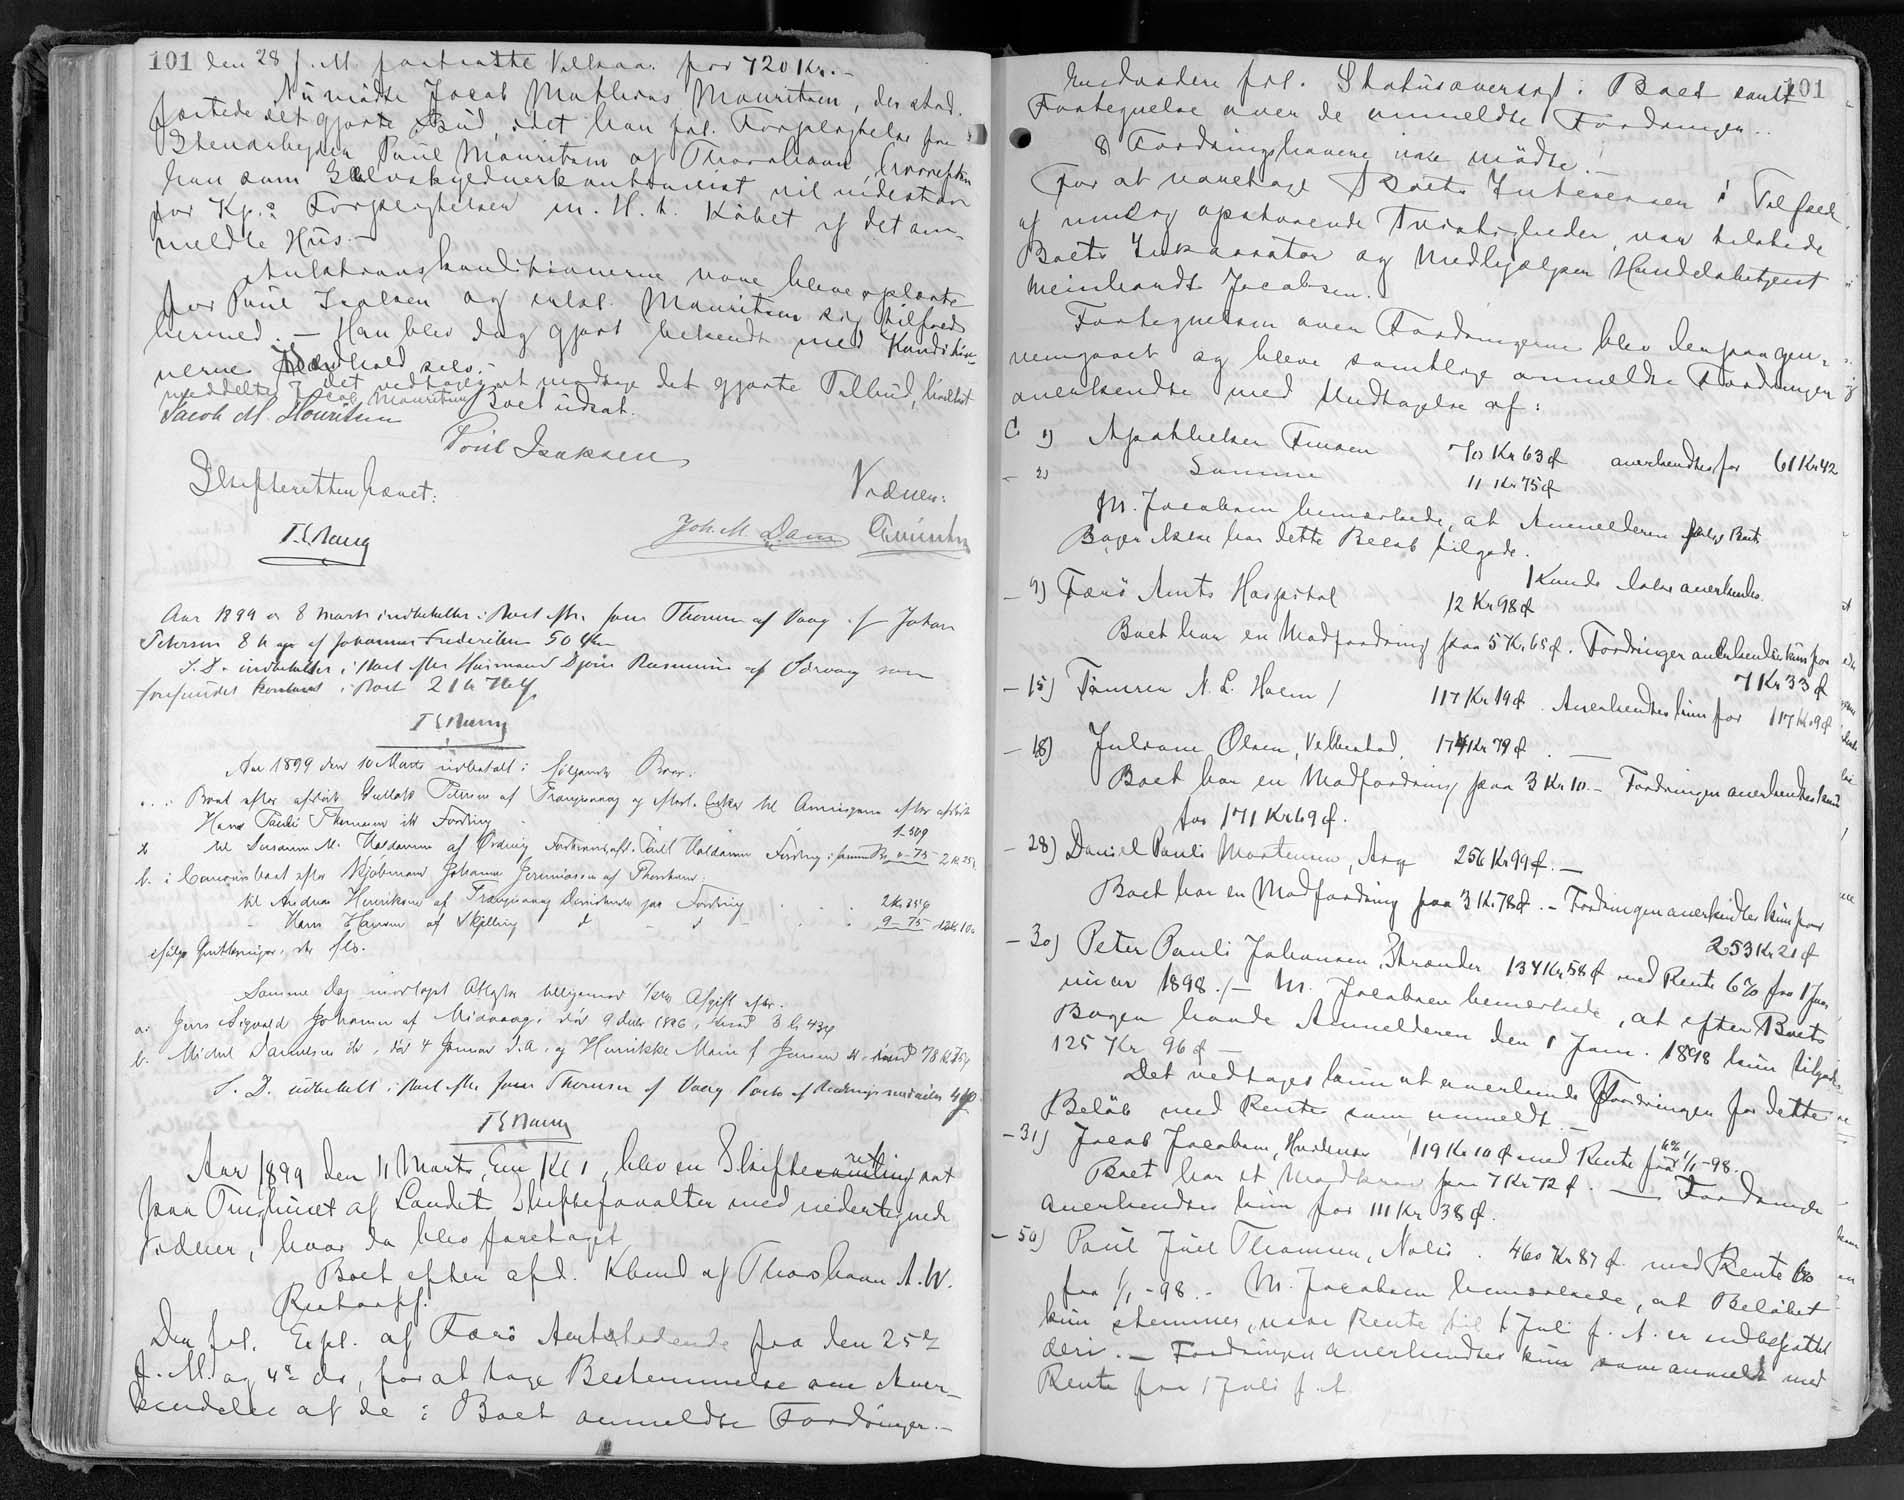 101 den 28 f. M. fortsatte Vilkaar for 720 Kr. -
Nu mödte Jacob Mathias Mouritsen, der stad-
fæstede det gjorte Bud, idet han frl. Forpligtelse fra
Stenarbejder Poul Mouritsen af Thorshavn, hvorefter
han som Selvskyldnerkautionist vil indestaa
for Kp.s Forpligtelser m. H. t. Köbet af det an-
meldte Hus. -
Auktionskonditionerne vare bleve oplæste
for Poul Isaksen og erkl. Mouritsen sig tilfreds
hermed. - Han blev dog gjort bekendt med Konditio-
nernes Indhold selv. -
det vedtoges at modtage det gjorte Tilbud, hvilket
meddeltes Jacob Mouritsen Boet udsat.
Jacob M. Mouritsen
Poul Isaksen
Skifteretten hævet:
Vidner:
Joh. M. Dam
Aar 1899 d 8 Marts indbetaltes i Boet eftr. Jens Thomsen af Vaag af Johan
Petersen 8 Kr og af Johannes Frederiksen 50 Kr
S. D. indbetaltes i Boet efter Husmand Djóni Rasmussen af Sörvaag som
forefundet kontant i Boet 21 Kr
Aar 1899 den 10 Marts udbetalt i fölgende Boer:
Boet efter afdöde Gullak Petersen af Trangisvaag og efterl. Enke til Arvingerne efter afdöde
Hans Pauli Thomsen itl Fordring
til Susanna M. Haldansen af Fordring
b. i Concursboet efter Kjöbmand Johannes Jeremiassen af Thorshavn:
til Andreas Henriksen af Trangisvaag Dividende paa Fordring 2 Kr 35 ø
- Hans Hansen af Skjelling d - d - 9 - 75
ifölge Qvitteringer, der flb.
Samme Dag modtaget Attester tilligemed 1/2 % Afgift efter:
a. Jens Sigvald Johansen af Midvaag, död 9 Decbr 1896, 3 Kr 43 ø
b. Michel Danielsen död 4 Januar d. A. og Henrikke Marie f Jensen
S. D. udbetalt i Boet eftr. Jens Thomsen af Vaag Porto af
Aar 1899 den 11 Marts, Em. Kl 1, blev en Skifteret sat
paa Tinghuset af Landets Skifteforvalter med undertegnede
Vidner, hvor da blev foretaget
Boet efter afd. Kbmd af Thorshavn A. W.
Restorff.
Der frl. Expl. af Færö Amtstidende fra den 25de
f. M. og 4de ds, for at tage Bestemmelse om Aner-
kendelse af de i Boet anmeldte Fordringer. -
101
Endvidere frl. Statusoversigt i Boet samt
Fortegnelse over de anmeldte Fordringer. -
8 Fordringshavere vare mödte. -
For at varetage Boets Interesser i Tilfælde
af mulig opstaaende Tvistigheder, var tilstede
Boets Inkassator og Medhjælper Handelsbetjent
Meinhardt Jacobsen.
Fortegnelsen over Fordringerne blev derpaa gen-
nemgaaet og bleve samtlige anmeldte Fordringer
anerkendte med Undtagelse af:
C 1) Apotheker Finsen 70 Kr 63 ø anerkendtes for 61 Kr 42
- 2) Samme 11 Kr 75 ø
M. Jacobsen bemærkede, at Anmelderen ifølge Boets
Boger ikke har dette Beløb tilgode.
Kunde ikke anerkendes.
- 9) Færö Amts Hospital 12 Kr 98 ø
Boet har en Modfordring paa 5 Kr 65 ø. Fordringen anerkendtes kun for
7 Kr 33 ø
- 15) Tömrer N. L. Holm / 117 Kr 19 ø. Anerkendtes kun for 117 Kr 9 ø
- 18) Juliane Olsen, Velbestad, 174 Kr 79 ø. -
Boet har en Modfordring paa 3 Kr 10. - Fordringen anerkendtes kun
for 171 Kr 69 ø.
- 28) Daniel Pauli Mortensen, Arge 256 Kr 99 ø. -
Boet har en Modfordring paa 3 Kr 78 ø. - Fordringen anerkendtes kun for
253 Kr 21 ø
- 30) Peter Pauli Johansen, Strænder 134 Kr 58 ø med Rente 6% fra 1 Jan-
uar 1898. /- M. Jacobsen bemærkede, at efter Boets
Boger havde Anmelderen den 1 Jan. 1898 kun tilgode
125 Kr 96 ø -
Det vedtages kun at anerkende Fordringen for dette
Belöb med Rente som anmeldt. -
- 31) Jacob Jacobsen, Husenar 119 Kr 10 ø med Rente 6% fra 1/1 - 98.
Boet har et Modkrav paa 7 Kr 72 ø. - Fordringen
anerkendtes kun for 111 Kr 38 ø.
- 50) Poul Juel Thomsen, Nolsö. 460 Kr 87 ø med Rente 6%
fra 1/1 - 98. - M. Jacobsen bemærkede, at Belöbet
kun stemmer, naar Rente til 1 Juli f. A. er indbefattet
deri. - Fordringen anerkendtes kun som anmeldt med
Rente fra 1 Juli f. A